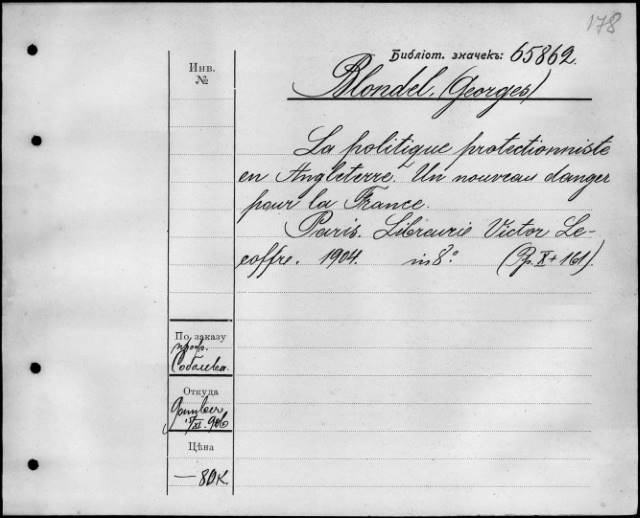 178
Библіот. значекъ: 65862.
Инв.
№
Blondel (Georges)
La politique protectionniste
en Angleterre. Un nouveau danger
pour la France.
Paris. Librairie Victor Le-
coffre. 1904. in 8° (Pp. X + 161).
По заказу
проф.
Соболева.
Откуда
XI 906
Цѣна
— 80 к.